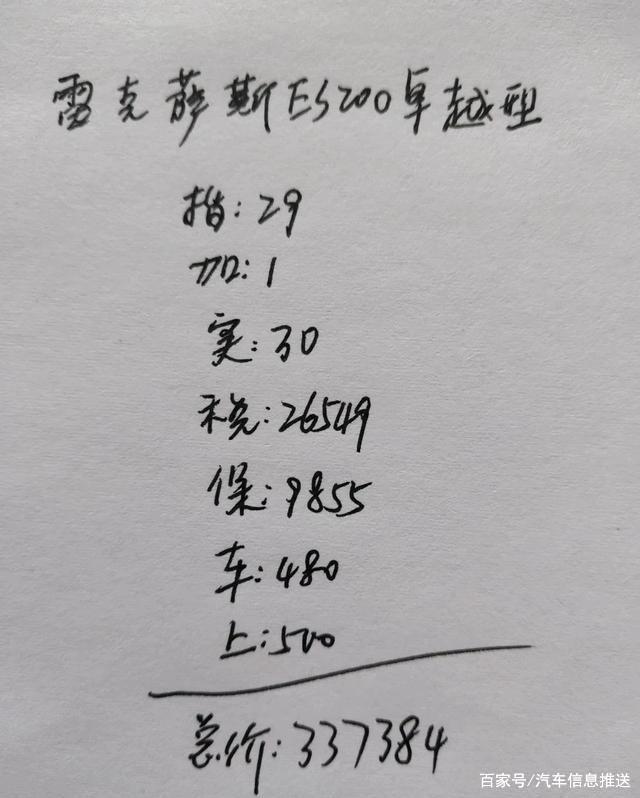 雷克萨斯ES200卓越型
指:29
加:1
实:30
税:26549
保:9855
车:480
上:500
总价:337384
百家号/汽车信息推送